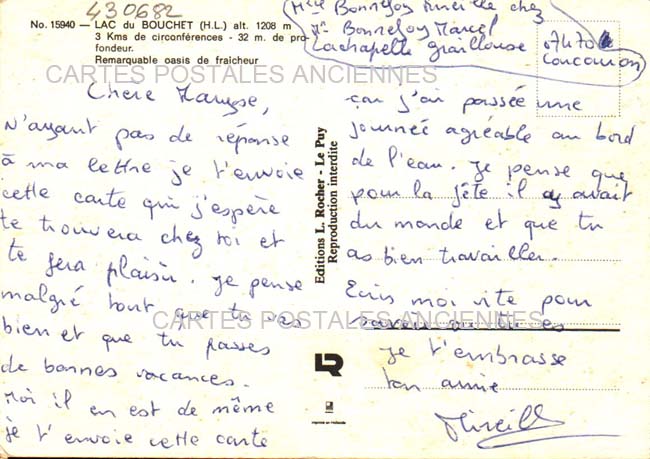 430682
No. 15940 – LAC du BOUCHET (H.L.) alt. 1208 m
3 Kms de circonférences - 32 m. de pro-
fondeur.
Remarquable oasis de fraicheur
Mlle Bonnefoy Mireille chez
Mr Bonnefoy Marcel
Lachapelle Graillouse
07470
Coucouron
CARTES POSTALES ANCIENNES
Chère Maryse,
N'ayant pas de réponse
à ma lettre je t'envoie
cette carte qui j'espère
te trouvera chez toi et
te fera plaisir. Je pense
malgré tout que tu vas
bien et que tu passes
de bonnes vacances.
Moi il en est de même
je t'envoie cette carte
Editions L. Rocher - Le Puy
Reproduction interdite
LR
Imprimé en Hollande
car j'ai passée une
journée agréable au bord
de l'eau. Je pense que
pour la fête il y avait
du monde et que tu
as bien travailler.
Ecris moi vite pour
savoir où tu es
CARTES POSTALES ANCIENNES
Je t'embrasse
ton amie
Mireille